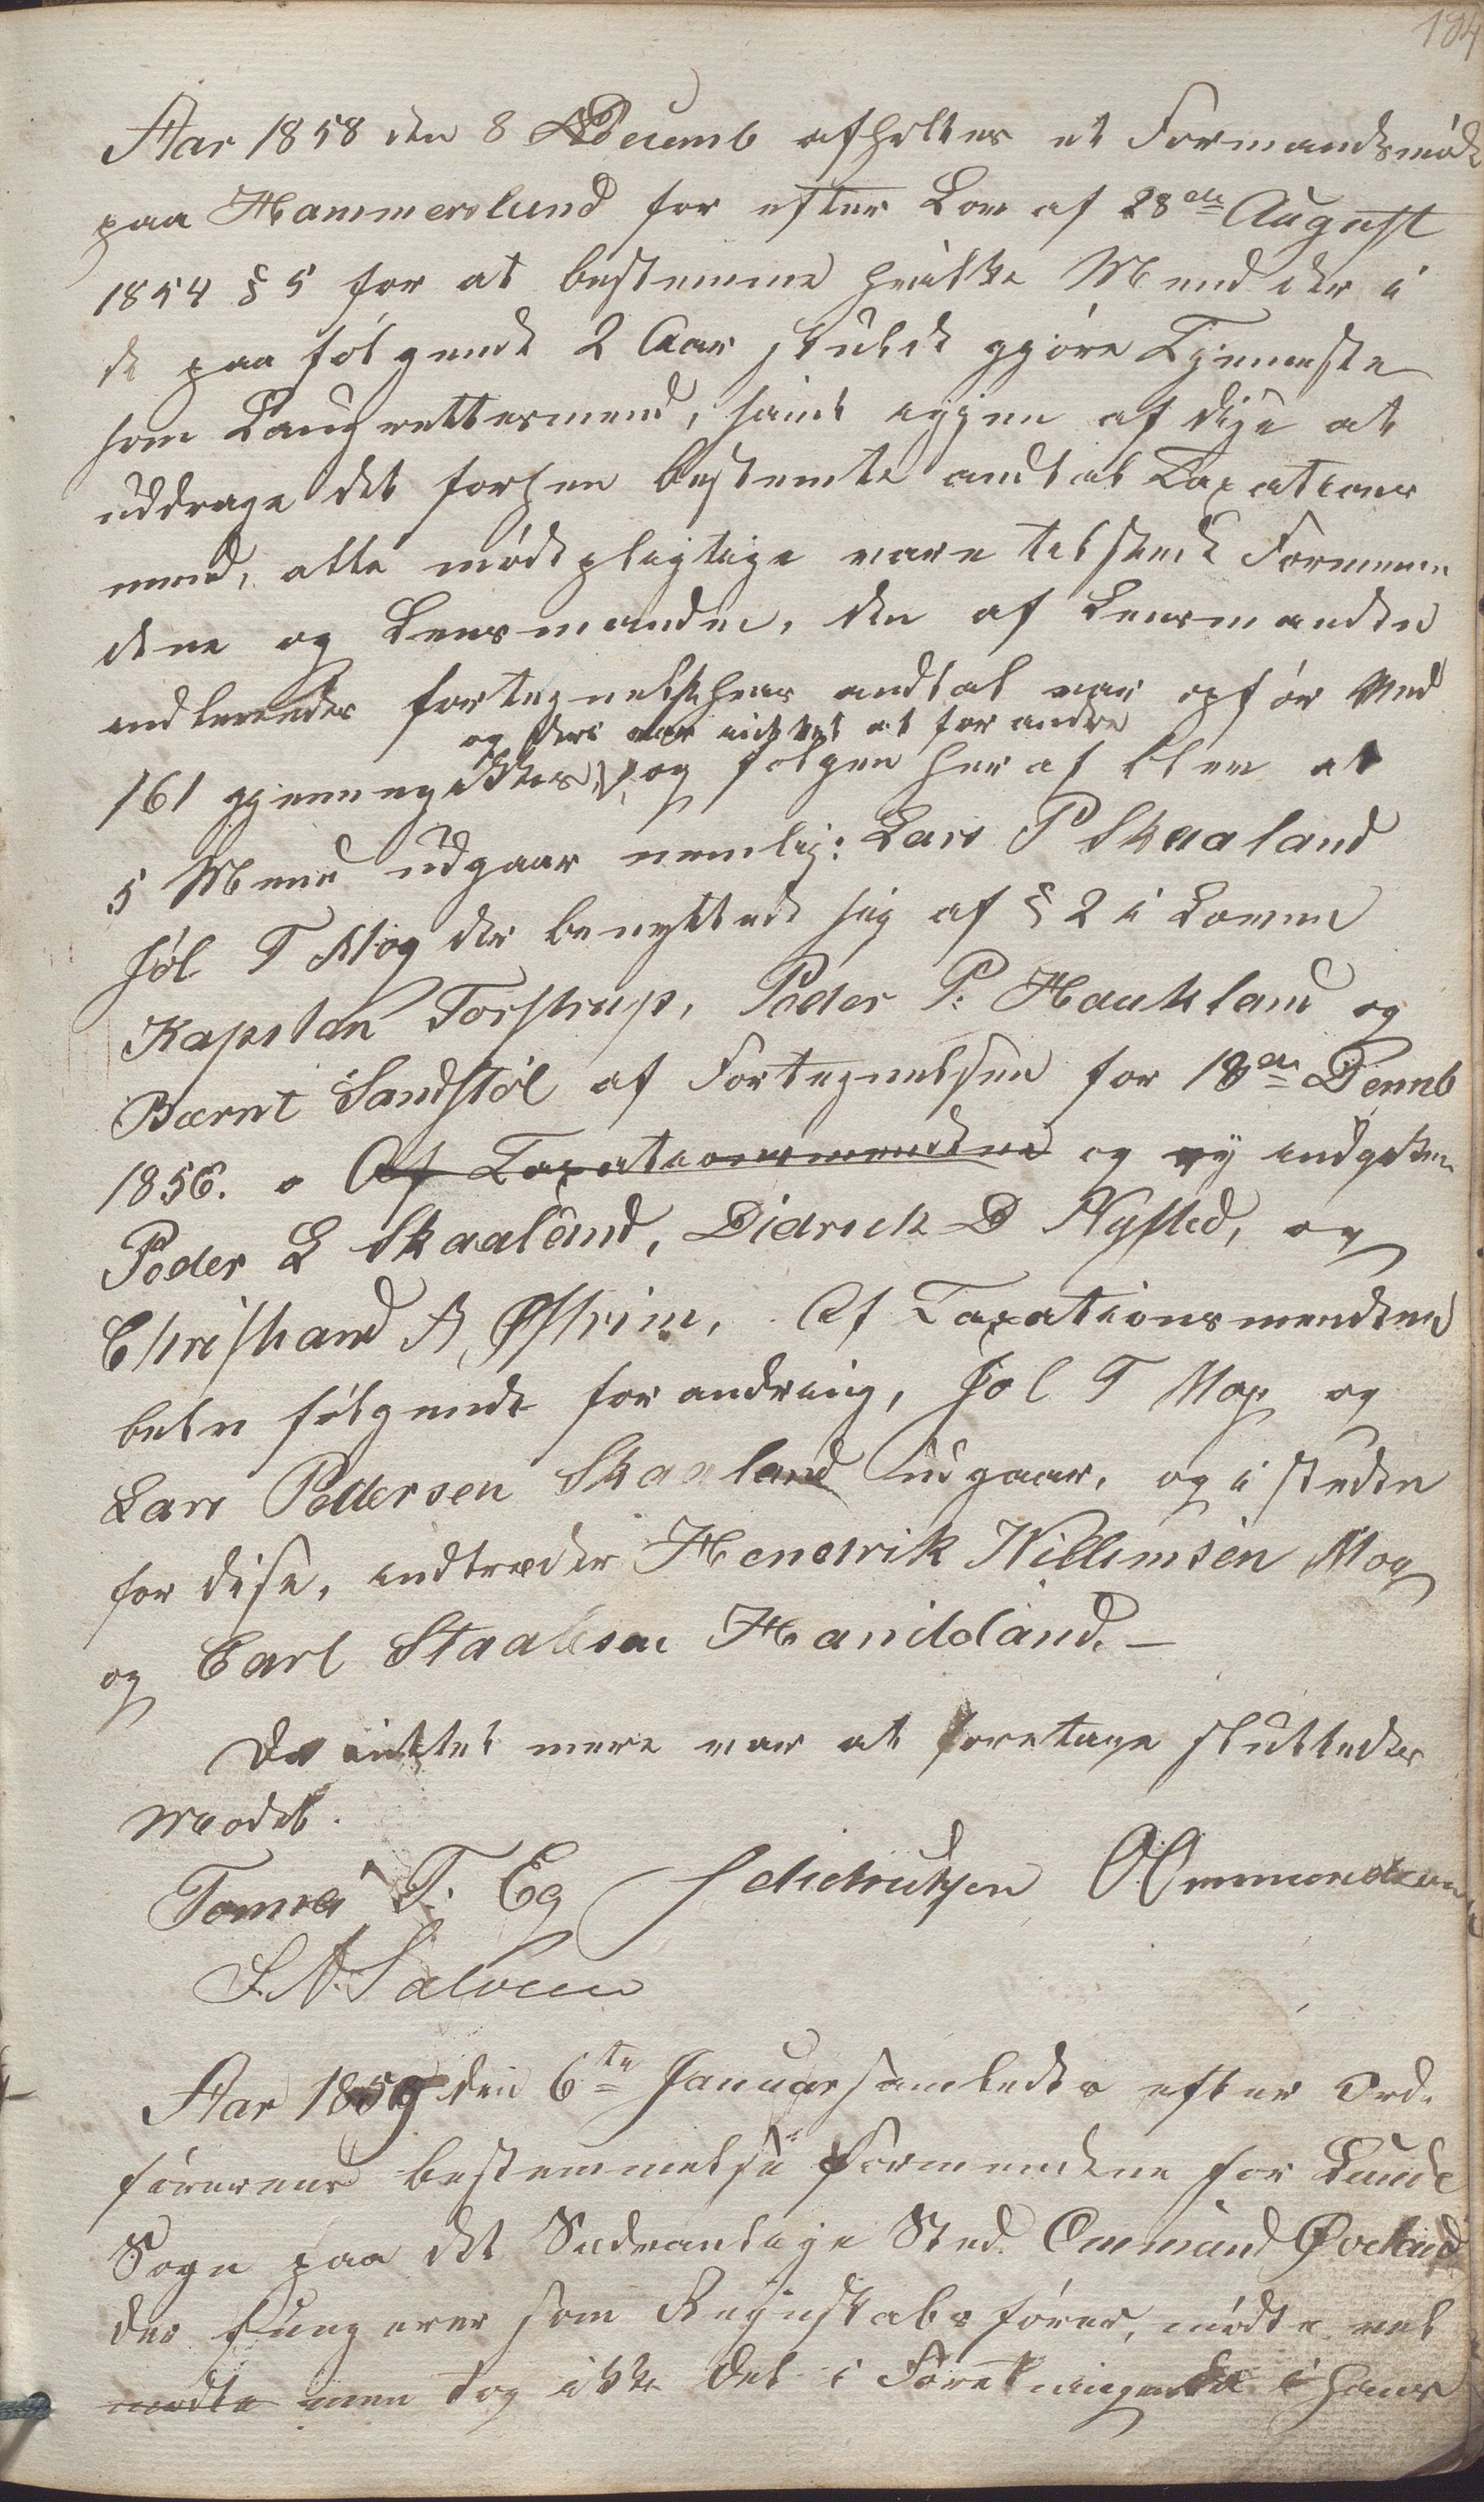 184
Aar 1858 den 8 Decemb afholtes et Formandsmøde
paa Hammerslund for efter Lov af 28de August
1854 § 5 for at bestemme hvilke Mend der i
de paa følgende 2 Aar skulde gjøre Tjeneste
som Laugrettesmend, samt igjen af disse at
uddrage det forhen bestemte andtal Taxations
mend, alle mødepligtige vare tilstede Formen
dene og Lensmanden, den af Lensmanden
indleverede fortegnelse hvis andtal var opført Med
og deri var intet at forandre
161 gjennemgikkes, og følgen heraf blev at
5 Mend udgaar nemlig: Lars P Skaaland
Jøl T Mog der benyttede sig af § 2 i Loven
Kapitan Torstrup, Peder P. Haukland og
Bærnt Sandstøl af Fortegnelsen for 18de Decemb
1856. Af Taxationsmendene og ny indgaten
Peder L Skaaland, Didrick D Nysted, og
Christian A Østreim, Af Taxationsmendene
blev følgende forandring, Jøl T Mog og
Lars Pettersen Skaaland udgaar, og i steden
for disse, indtræder Hendrik Willimsen Mog
og Carl Staalesen Hanikland. –
Da intet mere var at foretage sluttedes
Mødet.
Tomas T. Eg J Didriksen O Ommundsen
S. A. Salvesen
Aar 1859 den 6te Januar samledes efter Ord-
førerens bestemmelse Formendene for Lunde
Sogn paa det Sedvanlige Sted Ommund Øveland
der fungerer som Regnskabsfører, mødte vel
mødte men tog ikke del i Foretningen da i hans